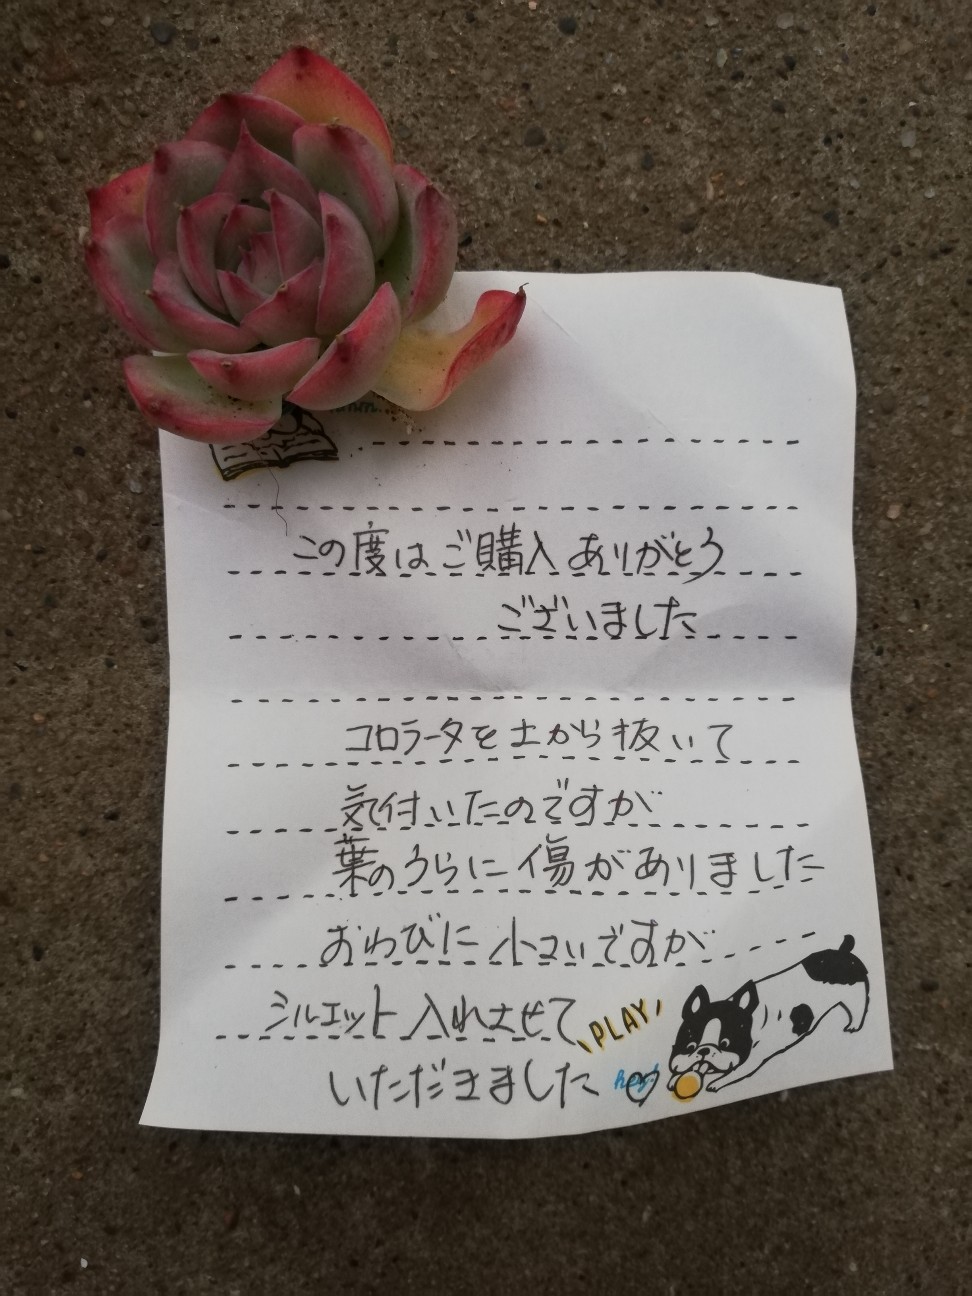 この度はご購入ありがとう
ございました
コロラータを土から抜いて
気付いたのですが
葉のうらに傷がありました
おわびに小さいですが
シルエット入れさせて
PLAY
いただきました
hey!